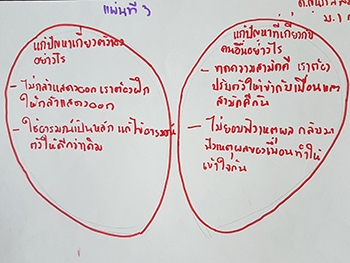 แผ่นที่ 3
ม.1
แก้ปัญหาเกี่ยวกับตัวเอง
อย่างไร
- ไม่กล้าแสดงออก เราต้องฝึก
ให้กล้าแสดงออก
- ใช้อารมณ์เป็นหลัก แก้ไขอารมณ์
ตัวให้ดีกว่าเดิม
แก้ปัญหาที่เกี่ยวกับ
คนอื่นอย่างไร
- ขาดความสามัคคี เราต้อง
ปรับตัวให้เข้ากับเพื่อน
สามัคคีกัน
- ไม่ยอมฟังเหตุผล กลับมา
ฟังเหตุผลของเพื่อนทำให้
เข้าใจกัน